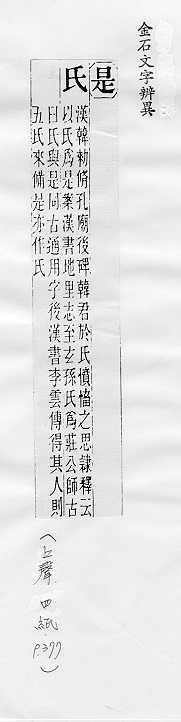 金石文字辨異
是
氏
漢韓勑脩孔廟後碑韓君於氏憤慉之思隷釋云
以氏爲是案漢書地里志至玄孫氏爲莊公師古
曰氏與是同古通用字後漢書李雲傳得其人則
五氏來備是亦作氏
（上聲 四紙 P.377）